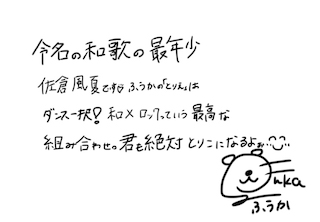 令名の和歌の最年少
佐倉風夏ですっ ふうかの「とりえ」は
ダンス一択!和×ロックっていう最高な
組み合わせ。君も絶対とりこになるよぉ
uka
ふうか